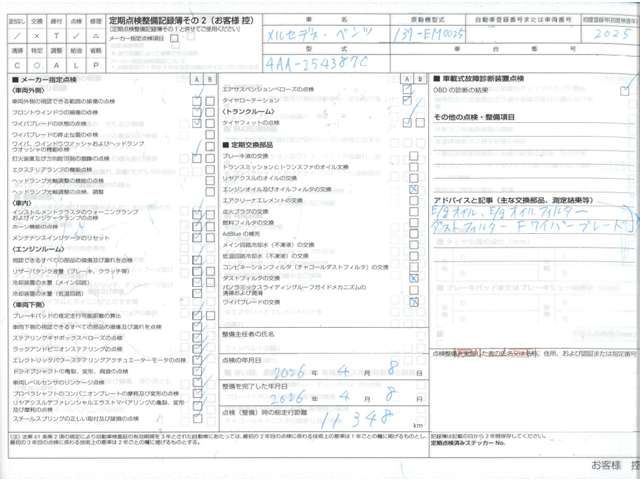 良否なし 交換 締付 点検 修理
／ × T ✓ △
清掃 特定 調整 給油 省略
C ○ A L P
定期点検整備記録簿その２（お客様 控）
（定期点検整備記録簿その１と併せてご使用ください）
メーカー指定点検項目
車 名
メルセデス・ベンツ
原動機型式
139-EM0025
自動車登録番号または車両番号
2025
型 式
4AA-254387C
車 台 番 号
■ メーカー指定点検
〈車両外側〉
車両外側の視認できる範囲の損傷の点検
フロントウインドウの損傷の点検
ワイパブレードの状態の点検
ワイパブレードの停止位置の点検
ワイパ、ウインドウウォッシャおよびヘッドランプ
ウオッシャの機能の点検
灯火装置及び方向指示器の損傷の点検
エクステリアランプの機能点検
ヘッドランプ光軸調整の機能の点検
ヘッドランプ光軸の点検、調整
〈車内〉
インストルメントクラスタのウォーニングランプ
およびインジケータランプの点検
ホーン機能の点検
メンテナンスインジケータのリセット
〈エンジンルーム〉
視認できるすべての部品の損傷及び漏れを点検
リザーバタンク液量（ブレーキ、クラッチ等）
冷却装置の水量（メイン回路）
冷却装置の水量（低温回路）
〈車両下側〉
ブレーキパッドの推定走行可能距離の算出
車両下側の視認できるすべての部品の損傷及び漏れを点検
ステアリングギヤボックスベローズの点検
ラックアンドピニオンステアリングの点検
エレクトリックパワーステアリングアクチュエーターモータの点検
ドライブシャフトの亀裂、変形、腐食の点検
車両レベルセンサのリンケージ点検
プロペラシャフトのコンパニオンプレートの摩耗及び変形の点検
リヤアクスルデファレンシャルエラストマベアリングの亀裂、変形
及び摩耗の点検
スチールスプリングの正しい取付及び破損の点検
A B
エアサスペンションベローズの点検
タイヤローテーション
〈トランクルーム〉
タイヤフィットの点検
■ 定期交換部品
ブレーキ液の交換
トランスミッションとトランスファのオイル交換
リヤアクスルのオイルの交換
エンジンオイル及びオイルフィルタの交換
エアクリーナエレメントの交換
点火プラグの交換
燃料フィルタの交換
AdBlue の補充
メイン回路冷却水（不凍液）の交換
低温回路冷却水（不凍液）の交換
コンビネーションフィルタ（チャコールダストフィルタ）の交換
ダストフィルタの交換
パノラミックスライディングルーフガイドメカニズムの
清掃および潤滑
ワイパブレードの交換
整備主任者の氏名
点検の年月日
2026 年 4 月 8 日
整備を完了した年月日
2026 年 4 月 8 日
点検（整備）時の総走行距離
11,348
km
■ 車載式故障診断装置点検
OBD の診断の結果
その他の点検・整備項目
アドバイスと記事（主な交換部品、測定結果等）
E/gオイル、E/gオイルフィルター
ダストフィルター F ワイパーブレード
（注）法第 61 条第２項の規定により自動車検査証の有効期間を３年とされた自動車にあたっては、最初の２年目の点検に係わる技術上の基準は１年ごとの欄に掲げるものとし、
最初の３年目の点検に係わる技術上の基準は２年ごとの欄に掲げるものとする。
記録簿は記載の日から２年間保存してください。
定期点検済みステッカー No.
お客様 控